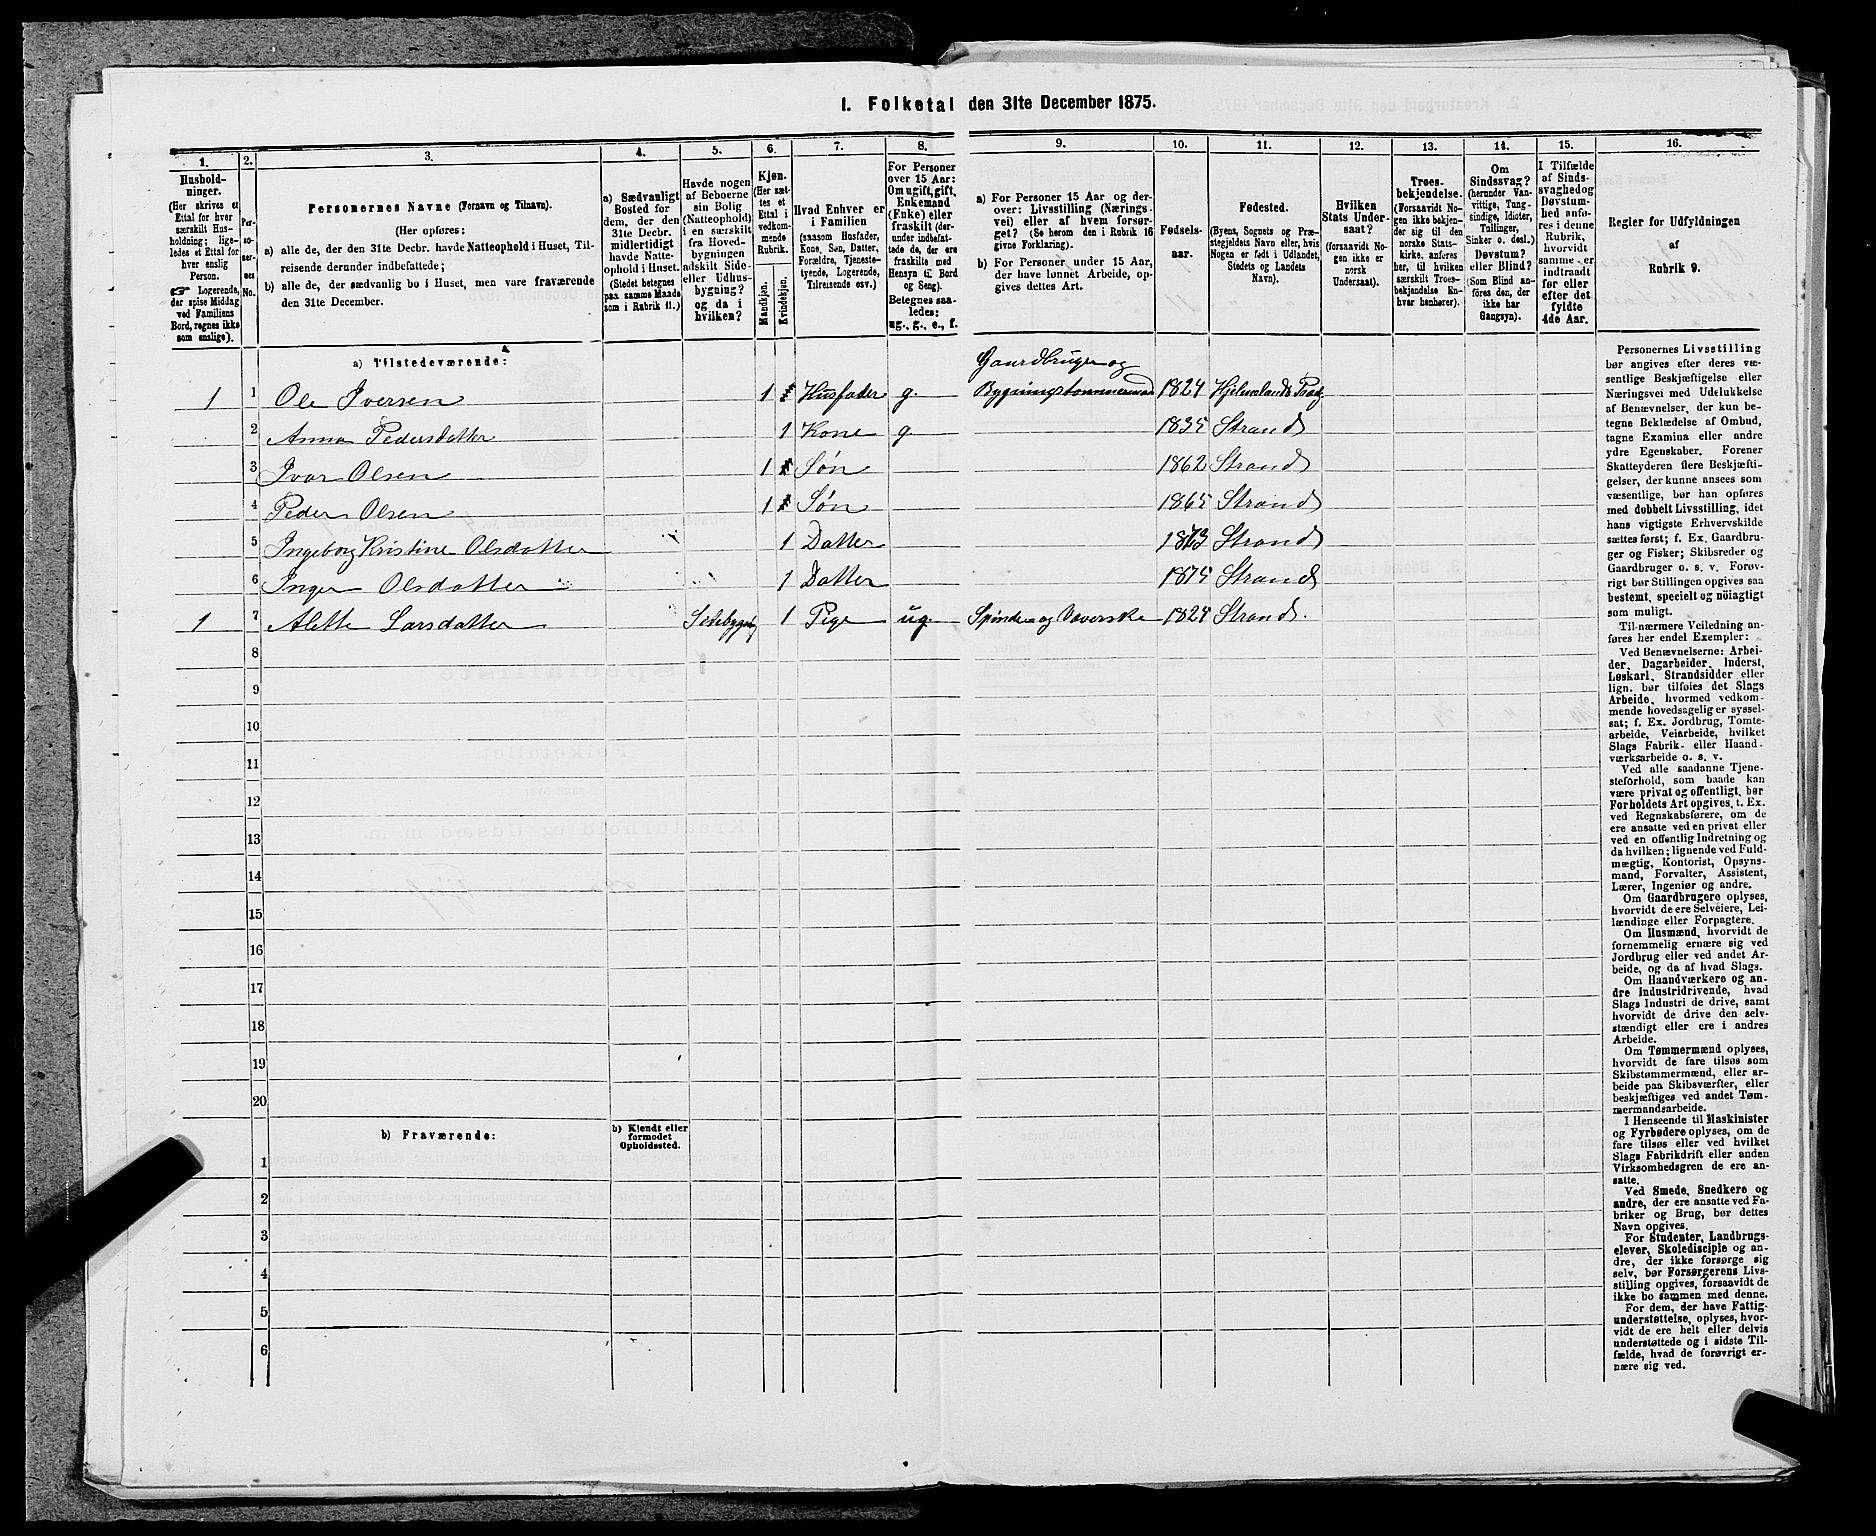 1. Folketal den 31te December 1875.
1. 2. 3. 4. 5. 6. 7. 8. 9. 10. 11. 12. 13. 14. 15. 16.
Hushold-
ninger.
(Her skrives et
Ettal for hver
særskilt Hus-
holdning; lige-
ledes et Ettal for
hver enslig
Person.
☞ Logerende,
der spise Middag
ved Familiens
Bord, regnes ikke
som enslige).
Per-
so-
ner-
nes
No.
Personernes Navne (Fornavn og Tilnavn).
(Her opføres:
a) alle de, der den 31te Decbr. havde Natteophold i Huset, Til-
reisende derunder indbefattede;
b) alle de, der sædvanlig bo i Huset, men vare fraværende
den 31te December.
a) Sædvanligt
Bosted for
dem, der den
31te Decbr.
midlertidigt
havde Natte-
ophold i Huset.
(Stedet betegnes
paa samme Maade
som i Rubrik 11.)
Havde nogen
af Beboerne
sin Bolig
(Natteophold)
i en særskilt
fra Hoved-
bygningen
adskilt Side-
eller Udhus-
bygning?
og da i
hvilken?
Kjøn.
(Her sæt-
tes et
Ettal i
vedkom-
mende
Rubrik.
Mandkjøn.
Kvindekjøn.
Hvad Enhver er
i Familien
(saasom Husfader,
Kone, Søn, Datter,
Forældre, Tjeneste-
tyende, Logerende,
Tilreisende osv.)
For Personer
over 15 Aar:
Om ugift, gift,
Enkemand
(Enke) eller
fraskilt (der-
under indbefat-
tede de, der ere
fraskilte med
Hensyn til Bord
og Seng).
Betegnes saa-
ledes:
ug., g., e., f.
a) For Personer 15 Aar og der-
over: Livsstilling (Nærings-
vei) eller af hvem forsør-
get? (Se herom den i Rubrik 16
givne Forklaring).
b) For Personer under 15 Aar,
der have lønnet Arbeide, op-
gives dettes Art.
Fødsels-
aar.
Fødested.
(Byens, Sognets og Præ-
stegjeldets Navn eller, hvis
Nogen er født i Udlandet,
Stedets og Landets
Navn).
Hvilken
Stats Under-
saat?
(forsaavidt No-
gen ikke er
norsk
Undersaat).
Troes-
bekjendelse.
(Forsaavidt No-
gen ikke bekjen-
der sig til den
norske Stats-
kirke, anføres
her, til hvilken
særskilt Troes-
bekjendelse En-
hver henhører).
Om
Sindssvag?
(herunder Van-
vittige, Tung-
sindige, Idioter,
Tullinger,
Sinker o. desl.)
Døvstum?
eller Blind?
(Som Blind an-
føres den, der
ikke har
Gangsyn).
I Tilfælde
af Sinds-
svaghed og
Døvstum-
hed anfø-
res i denne
Rubrik,
hvorvidt
samme er
indtraadt
før eller
efter det
fyldte
4de Aar.
Regler for Udfyldningen
af
Rubrik 9.
a) Tilstedeværende:
Gaardbruger og
1 1 Ole Iversen 1 Husfader g. Bygningstømmermand 1824 Hjelmelands Præg
2 Anna Pedersdatter 1 Kone g. 1835 Strand
3 Ivar Olsen 1 Søn 1862 Strand
4 Peder Olsen 1 Søn 1865 Strand
5 Ingeborg Kristine Olsdatter 1 Datter 1873 Strand
6 Inger Olsdatter 1 Datter 1875 Strand
1 7 Alette Larsdatter Sidebygnig 1 Pige ug. Spinde og Væverske 1824 Strand.
8
9
10
11
12
13
14
15
16
17
18
19
20
b) Fraværende:
b) Kjendt eller
formodet
Opholdssted.
1
2
3
4
5
6
Personernes Livsstilling
bør angives efter deres væ-
sentlige Beskjæftigelse eller
Næringsvei med Udelukkelse
af Benævnelser, der kun be-
tegne Beklædelse af Ombud,
tagne Examina eller andre
ydre Egenskaber. Forener
Skatteyderen flere Beskjæfti-
gelser, der kunne ansees som
væsentlige, bør han opføres
med dobbelt Livsstilling, idet
hans vigtigste Erhvervskilde
sættes først; f. Ex. Gaardbru-
ger og Fisker; Skibsreder og
Gaardbruger o. s. v. Forøv-
rigt bør Stillingen opgives saa
bestemt, specielt og nøiagtigt
som muligt.
Til nærmere Veiledning an-
føres her endel Exempler:
Ved Benævnelserne: Arbei-
der, Dagarbeider, Inderst,
Løskarl, Strandsidder eller
lign. bør tilføies det Slags
Arbeide, hvormed vedkom-
mende hovedsagelig er syssel-
sat; f. Ex. Jordbrug, Tomte-
arbeide, Veiarbeide, hvilket
Slags Fabrik- eller Haand-
værksarbeide o. s. v.
Ved alle saadanne Tjene-
steforhold, som baade kan
være privat og offentligt, bør
Forholdets Art opgives, t. Ex.
ved Regnskabsførere, om de
ere ansatte ved en privat eller
ved en offentlig Indretning og
da hvilken; lignende ved Fuld-
mægtig, Kontorist, Opsyns-
mand, Forvalter, Assistent,
Lærer, Ingeniør og andre.
Om Gaardbrugere oplyses,
hvorvidt de ere Selveiere, Lei-
lændinge eller Forpagtere.
Om Husmænd, hvorvidt de
fornemmelig ernære sig ved
Jordbrug eller ved andet Ar-
beide, og da af hvad Slags.
Om Haandværkere og an-
dre Industridrivende, hvad
Slags Industri de drive, samt
hvorvidt de drive den selv-
stændigt eller ere i andres
Arbeide.
Om Tømmermænd oplyses,
hvorvidt de fare tilsøs som
Skibstømmermænd, eller ar-
beide paa Skibsværfter, eller
beskjæftiges ved andet Tøm-
mermandsarbeide.
I Henseende til Maskinister
og Fyrbødere oplyses, om de
fare tilsøs eller ved hvilket
Slags Fabrikdrift eller anden
Virksomhedsgren de ere an-
satte.
Ved Smede, Snedkere og
andre, der ere ansatte ved Fa-
briker og Brug, bør dettes
Navn opgives.
For Studenter, Landbrugs-
elever, Skoledisciple og an-
dre, der ikke forsørge sig
selv, bør Forsørgerens Livs-
stilling opgives, forsaavidt de
ikke bo sammen med denne.
For dem, der have Fattig-
understøttelse, oplyses, hvor-
vidt de ere helt eller delvis
understøttede og i sidste Til-
fælde, hvad de forøvrigt er-
nære sig ved.